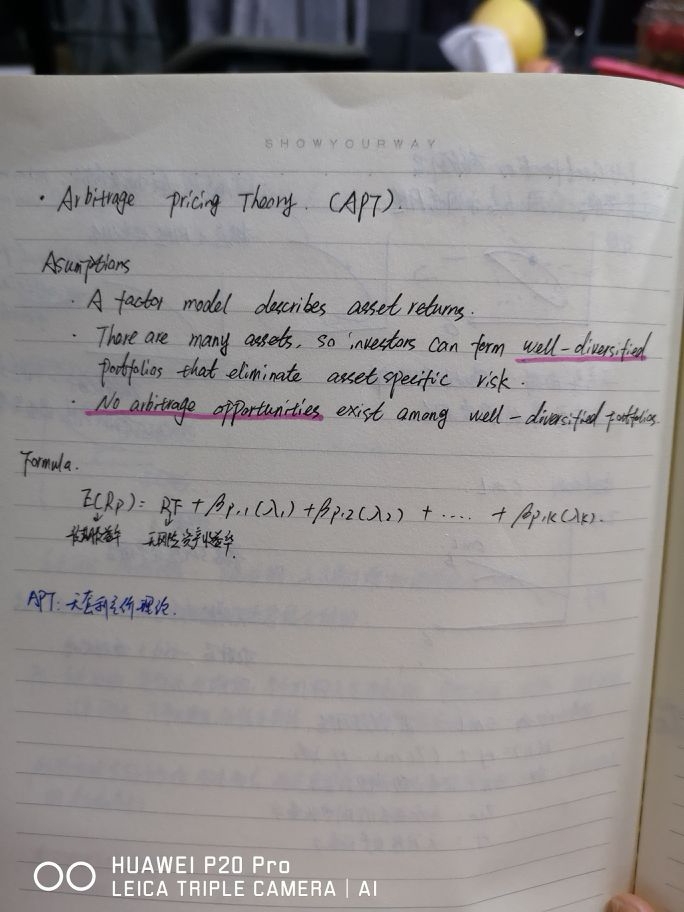 SHOWYOURWAY
· Arbitrage pricing Theory. (APT).
Asumptions
· A factor model describes asset returns.
· There are many assets, so investors can form well-diversified
portfolios that eliminate asset specific risk.
· No arbitrage opportunities exist among well-diversified portfolios.
Formula.
E(Rp) = RF + βp,1(λ1) + βp,2(λ2) + .... + βp,K(λK).
无风险资产收益率.
APT: 无套利定价理论.
HUAWEI P20 Pro
LEICA TRIPLE CAMERA | AI